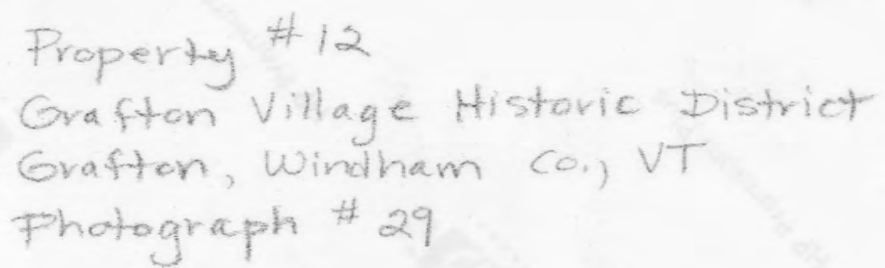 Property #12
Grafton Village Historic District
Grafton, Windham Co., VT
Photograph # 29